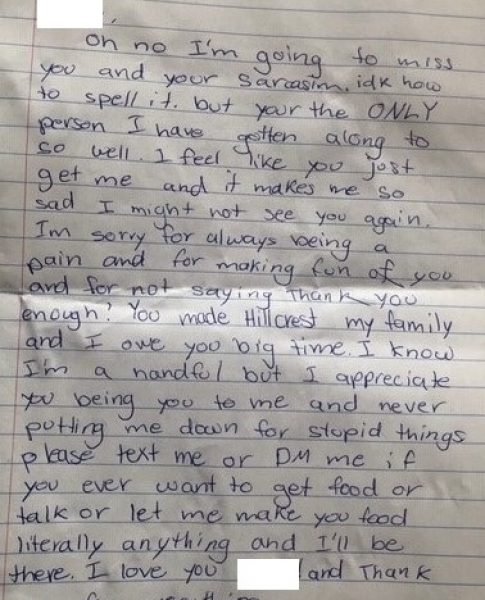 Oh no I'm going to miss
you and your sarcasim. idk how
to spell it. but your the ONLY
person I have gotten along to
so well. I feel like you just
get me and it makes me so
sad I might not see you again.
Im sorry for always being a
pain and for making fun of you
and for not saying Thank you
enough! You made Hillcrest my family
and I owe you big time. I know
I'm a handful but I appreciate
you being you to me and never
putting me down for stupid things
please text me or DM me if
you ever want to get food or
talk or let me make you food
literally anything and I'll be
there. I love you and Thank